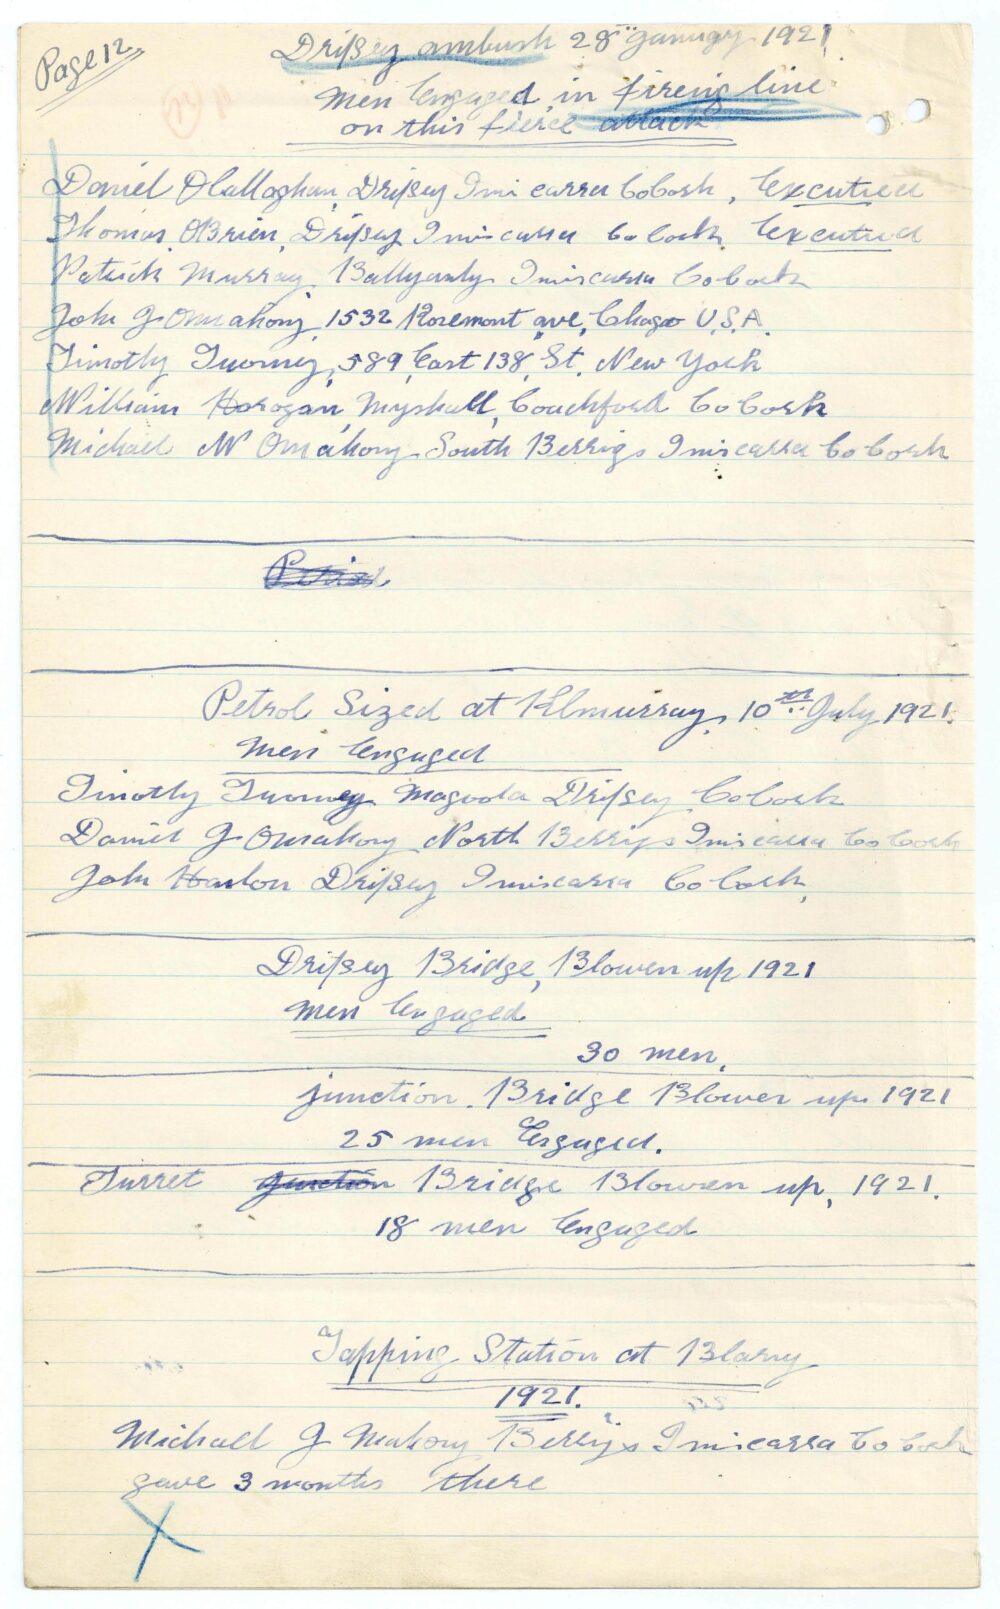 Page 12
Dripsey ambush 28th January 1921
Men Engaged in fireing line
on this fierce attack
Daniel OCallaghan, Dripsey Iniscarra Co Cork, Executed
Thomas OBrien, Dripsey Iniscarra Co Cork, Executed
Patrick Murray Ballyanly Iniscarra Co Cork
John J OMahony 1532 Rosemont ave, Chago U.S.A.
Timothy Twomey, 589 East 138 St. New York
William Horogan, Myshall, Coachford Co Cork
Michael W OMahony South Berrigs Iniscarra Co Cork
Petrol Sized at Kilmurray, 10th July 1921.
Men Engaged
Timothy Twomey Magoola Dripsey Co Cork
Daniel J OMahony North Berrigs Iniscarra Co Cork
John Hanlon Dripsey Iniscarra Co Cork,
Dripsey Bridge, Blowen up 1921
Men Engaged
30 men,
junction. Bridge Blowen up. 1921
25 men Engaged.
Turret junction Bridge Blowen up, 1921.
18 men Engaged
Tapping Station at Blarny
1921.
Michael J Mahony Berrigs Iniscarra Co Cork
gave 3 months there